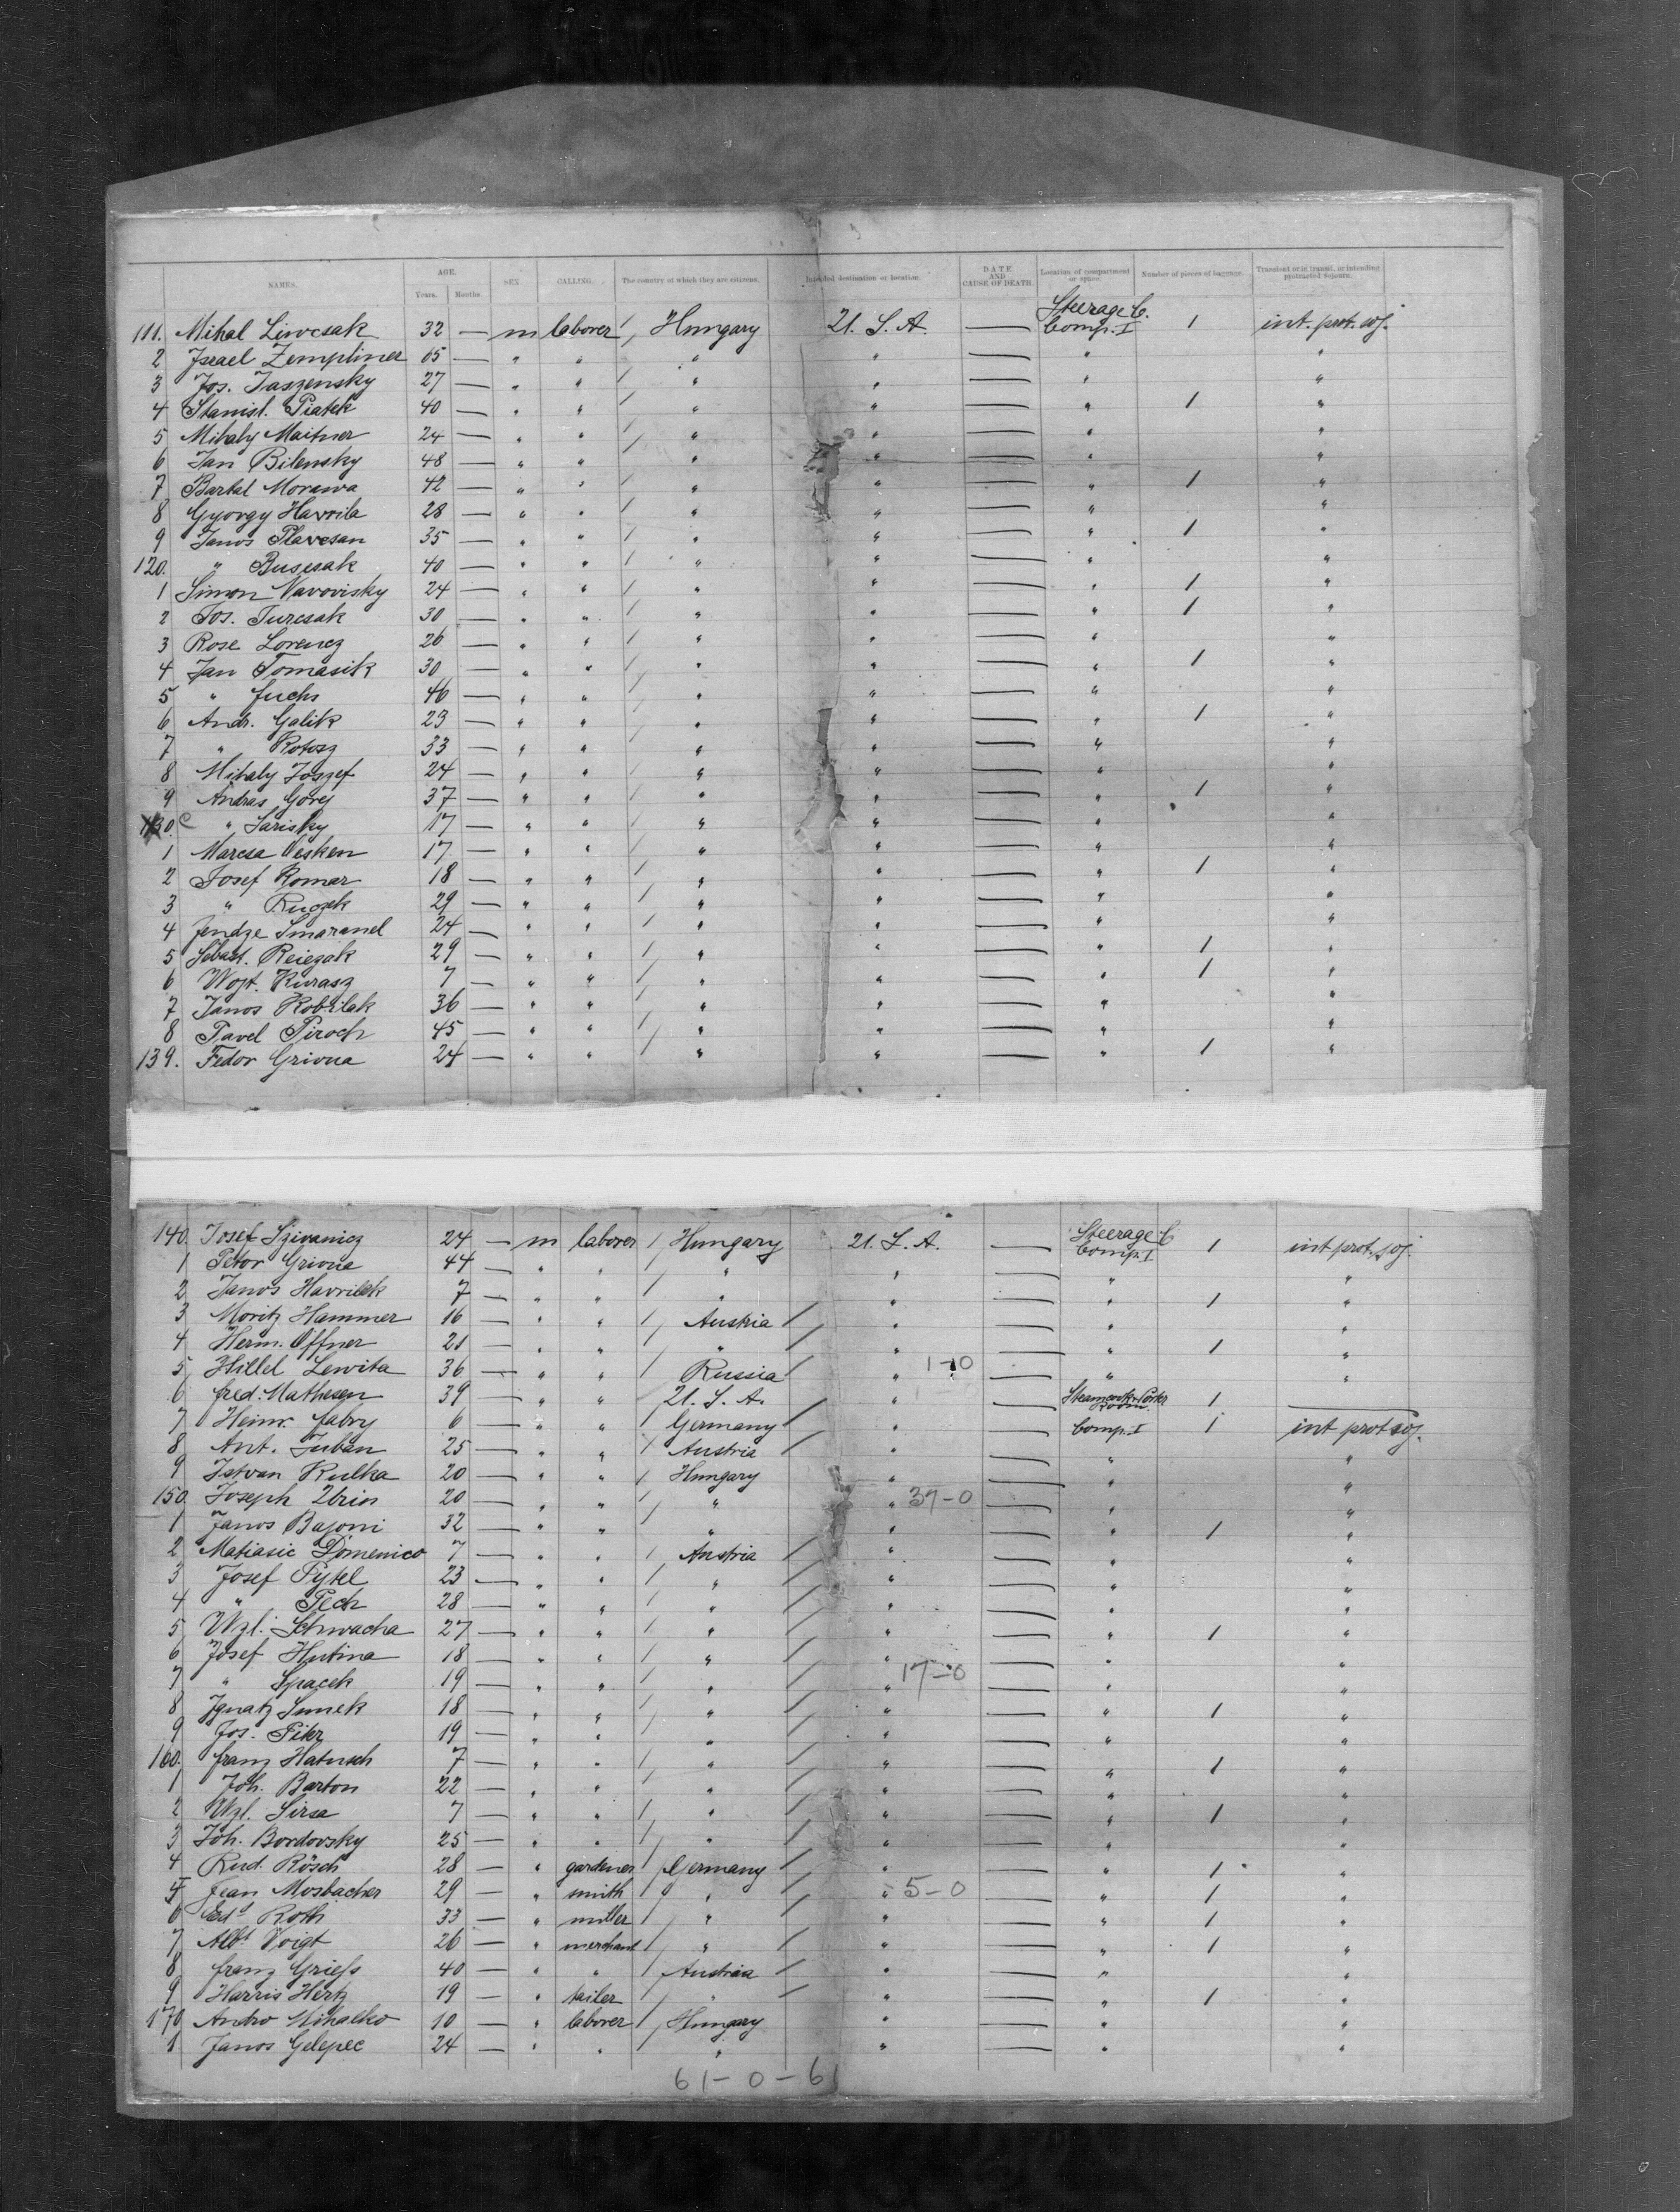 NAMES. AGE. Years. Months. SEX CALLING. The country of which they are citizens. Intended destination or location. DATE AND CAUSE OF DEATH. Location of compartment or space. Number of pieces of baggage. Transient or in transit, or intending protracted Sojourn.
111. Mihal Liwcsak 32 — m laborer / Hungary U. S. A. — Steerage C. Comp. I 1 int. prot. soj.
2 Israel Zempliner 65 — " " " " — " "
3 Jos. Jaszensky 27 — " " / " " — " "
4 Stanisl. Piatek 40 — " " / " " — " 1 "
5 Mihaly Maitner 24 — " " / " " — " "
6 Jan Bilensky 48 — " " / " " — " "
7 Bartal Morawa 42 — " " / " " — " 1 "
8 Gyorgy Havrila 28 — " " / " " — " "
9 Janos Plavcsan 35 — " " / " " — " 1 "
120. " Buscsak 40 — " " / " " — " "
1 Simon Vavovisky 24 — " " / " " — " 1 "
2 Jos. Turcsak 30 — " " / " " — " 1 "
3 Rose Lorencz 26 — " " / " " — " "
4 Jan Tomasik 30 — " " / " " — " 1 "
5 " Fuchs 46 — " " / " " — " "
6 Andr. Galik 23 — " " / " " — " 1 "
7 " Rotosz 33 — " " / " " — " "
8 Mihaly Joszef 24 — " " / " " — " "
9 Andras Gorej 37 — " " / " " — " 1 "
130. " Sarisky 17 — " " / " " — " "
1 Marcsa Vesken 17 — " " / " " — " "
2 Josef Romar 18 — " " / " " — " 1 "
3 " Ruczek 29 — " " / " " — " "
4 Jendze Smarand 24 — " " / " " — " "
5 Sebast. Reiczak 29 — " " / " " — " 1 "
6 Wojt. Kurasz 7 — " " / " " — " 1 "
7 Janos Kobrilak 36 — " " / " " — " "
8 Pavel Piroch 45 — " " / " " — " "
139. Fedor Grivna 24 — " " / " " — " 1 "
140. Josef Szivanicz 24 — m laborer / Hungary U. S. A. — Steerage C Comp. I 1 int prot. soj.
1 Petor Grivna 44 — " " / " " — " "
2 Janos Havrilak 7 — " " / " " — " 1 "
3 Moritz Hammer 16 — " " / Austria / " — " "
4 Herm. Offner 21 — " " / " / " — " 1 "
5 Hillel Lewita 36 — " " / Russia / " 1-0 — " "
6 Fred. Mathesen 39 — " " U. S. A. " — Room. 1 —
7 Heinr. Fabry 6 — " " / Germany / " — Comp. I 1 int prot soj.
8 Ant. Juban 25 — " " / Austria / " — " "
9 Istvan Kulka 20 — " " / Hungary " — " "
150. Joseph Ubrin 20 — " " / " " 37-0 — " "
1 Janos Bajoni 32 — " " / " " — " 1 "
2 Matiasic Domenico 7 — " " / Austria / " — " "
3 Josef Pytel 23 — " " / " / " — " "
4 " Pech 28 — " " / " / " — " "
5 Wzl. Schwacha 27 — " " / " / " — " 1 "
6 Josef Hutina 18 — " " / " / " — " "
7 " Spacek 19 — " " / " / " 17-0 — " "
8 Ignatz Simek 18 — " " / " / " — " 1 "
9 Jos. Pikr 19 — " " / " / " — " "
160. Franz Hatusch 7 — " " / " / " — " 1 "
1 Joh. Barton 22 — " " / " / " — " "
2 Wzl. Sirsa 7 — " " / " / " — " 1 "
3 Joh. Bordovsky 25 — " " / " / " — " "
4 Rud. Rösch 28 — " gardener / Germany / " — " 1 "
5 Jean Mosbacher 29 — " smith / " / " 5-0 — " 1 "
6 Edd Roth 33 — " miller / " / " — " 1 "
7 Albt Voigt 26 — " merchant / " / " — " 1 "
8 Franz Griess 40 — " " / Austria / " — " "
9 Harris Hertz 19 — " tailer / " / " — " 1 "
170 Andro Mihalko 10 — " laborer / Hungary " — " "
1 Janos Gelepec 24 — " " " " — " "
61-0-61